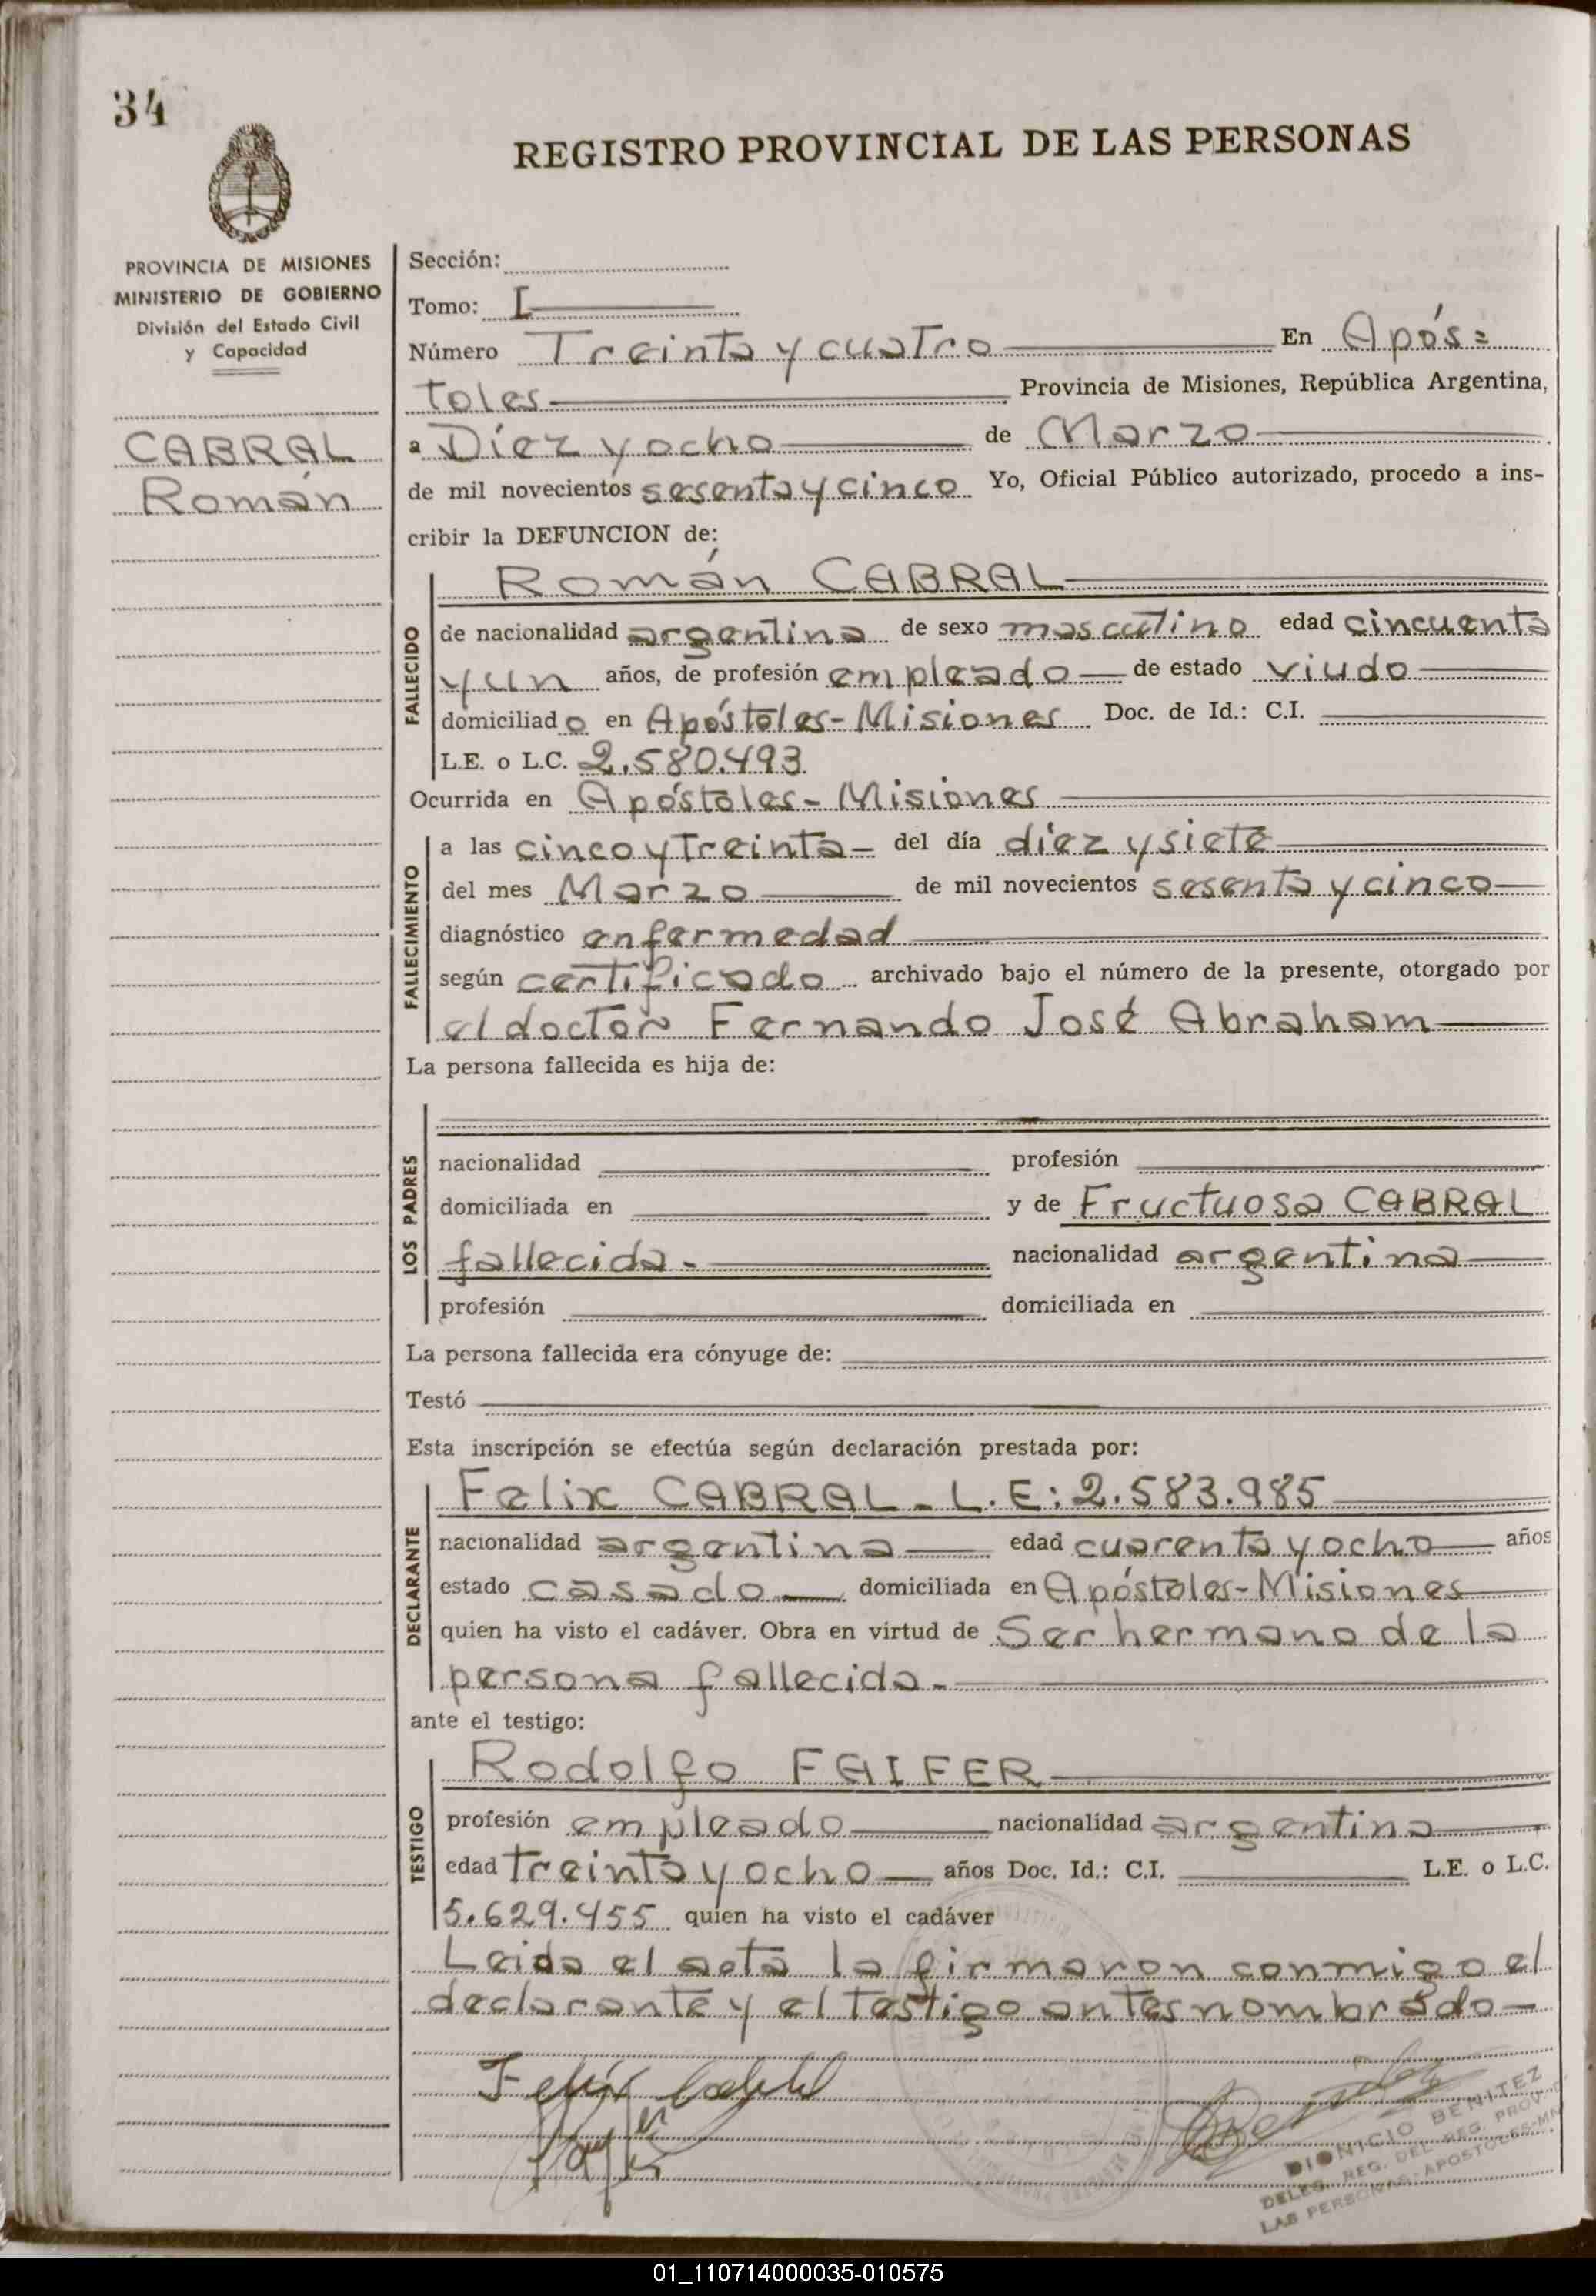 34
REGISTRO PROVINCIAL DE LAS PERSONAS
PROVINCIA DE MISIONES
MINISTERIO DE GOBIERNO
División del Estado Civil
y Capacidad
CABRAL
Román
Sección:
Tomo: I
Número Treinta y cuatro En Após=
toles Provincia de Misiones, República Argentina,
a Diez y ocho de Marzo
de mil novecientos sesenta y cinco Yo, Oficial Público autorizado, procedo a ins-
cribir la DEFUNCION de:
FALLECIDO
Román CABRAL
de nacionalidad argentina de sexo masculino edad cincuenta
y un años, de profesión empleado de estado viudo
domiciliado en Apóstoles-Misiones Doc. de Id.: C.I.
L.E. o L.C. 2.580.493
Ocurrida en Apóstoles-Misiones
FALLECIMIENTO
a las cinco y treinta del día diez y siete
del mes Marzo de mil novecientos sesenta y cinco
diagnóstico enfermedad
según certificado archivado bajo el número de la presente, otorgado por
el doctor Fernando José Abraham
La persona fallecida es hija de:
LOS PADRES
nacionalidad profesión
domiciliada en y de Fructuosa CABRAL
fallecida.- nacionalidad argentina
profesión domiciliada en
La persona fallecida era cónyuge de:
Testó
Esta inscripción se efectúa según declaración prestada por:
DECLARANTE
Felix CABRAL - L.E: 2.583.985
nacionalidad argentina edad cuarenta y ocho años
estado casado domiciliada en Apóstoles-Misiones
quien ha visto el cadáver. Obra en virtud de Ser hermano de la
persona fallecida.-
ante el testigo:
TESTIGO
Rodolfo FAIFER
profesión empleado nacionalidad argentina
edad treinta y ocho años Doc. Id.: C.I. L.E. o L.C.
5.629.455 quien ha visto el cadáver
Leida el acta la firmaron conmigo el
declarante y el testigo antes nombrado
Felix Cabral
DIONICIO BENITEZ
DELEG. REG. DEL REG. PROV. DE
LAS PERSONAS-APOSTOLES-MNES.
01_110714000035-010575